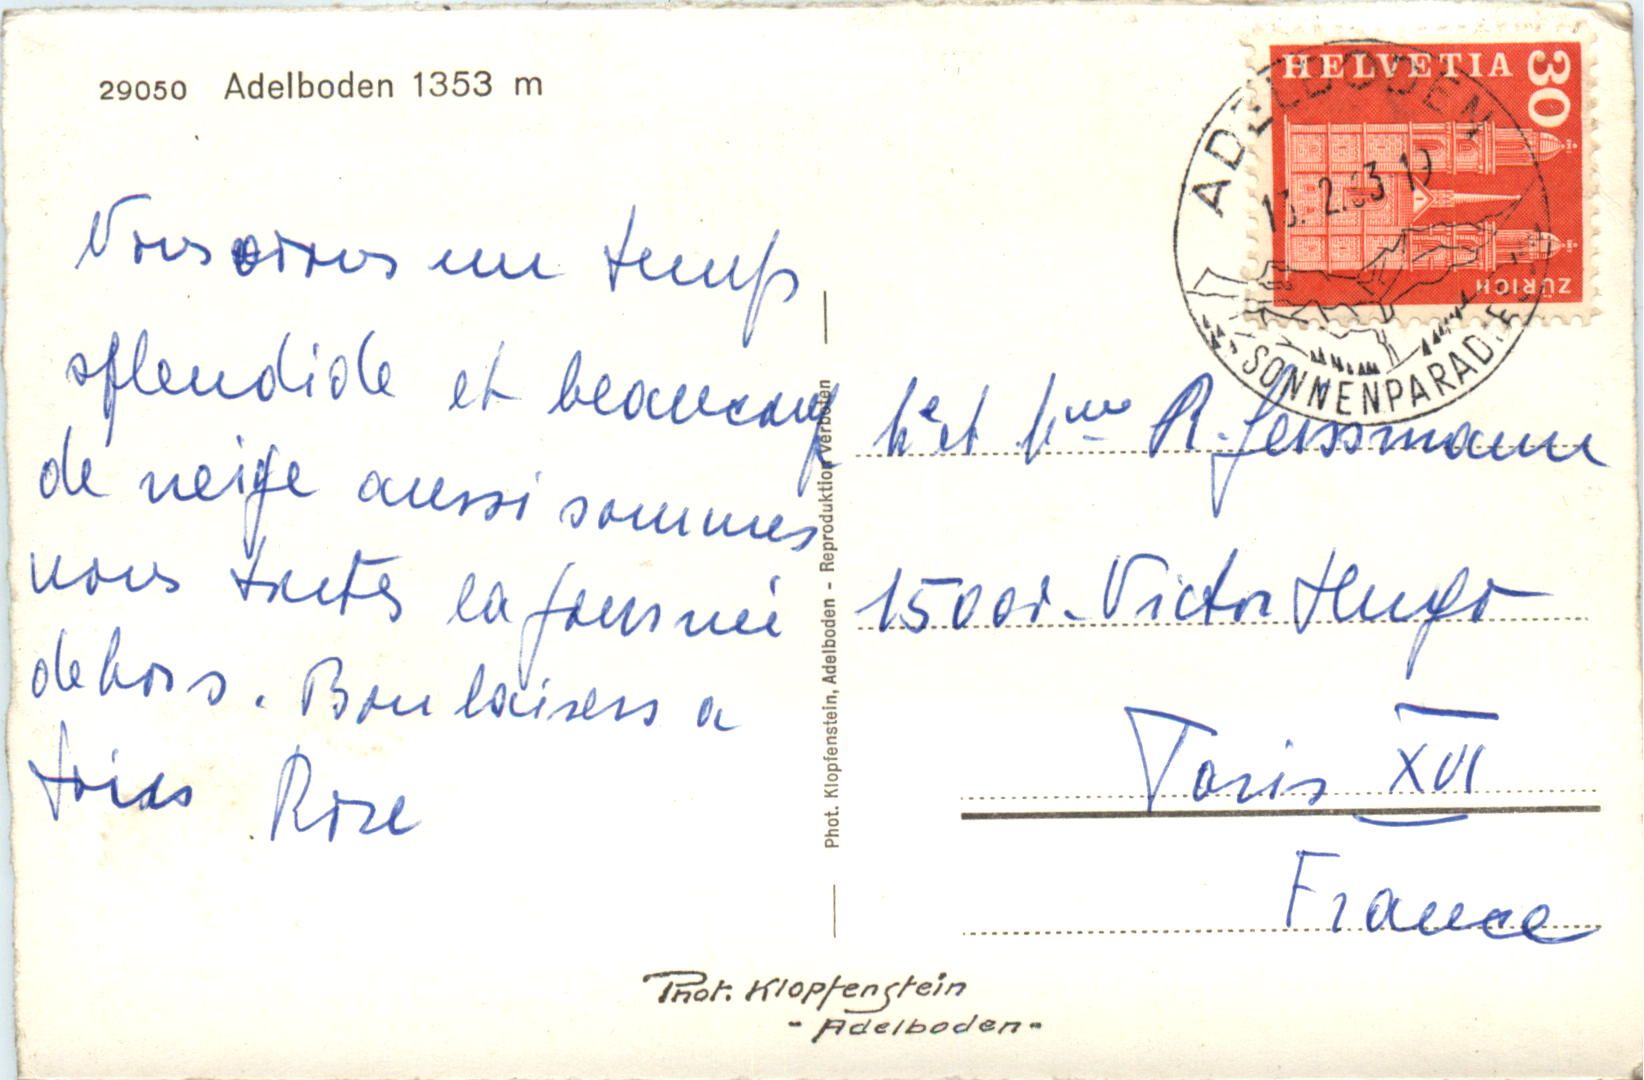 29050 Adelboden 1353 m
Nous avons un temps
splendide et beaucoup
de neige aussi sommes
nous toutes la journée
dehors. Bon baisers a
tous Rose
Phot. Klopfenstein, Adelboden - Reproduktion verboten
HELVETIA
30
ZÜRICH
ADELBODEN
13. 2.63
SONNENPARADIES
et Mme R. Geissmann
Victor Hugo
Paris XVI
France
Phot. Klopfenstein
- Adelboden -